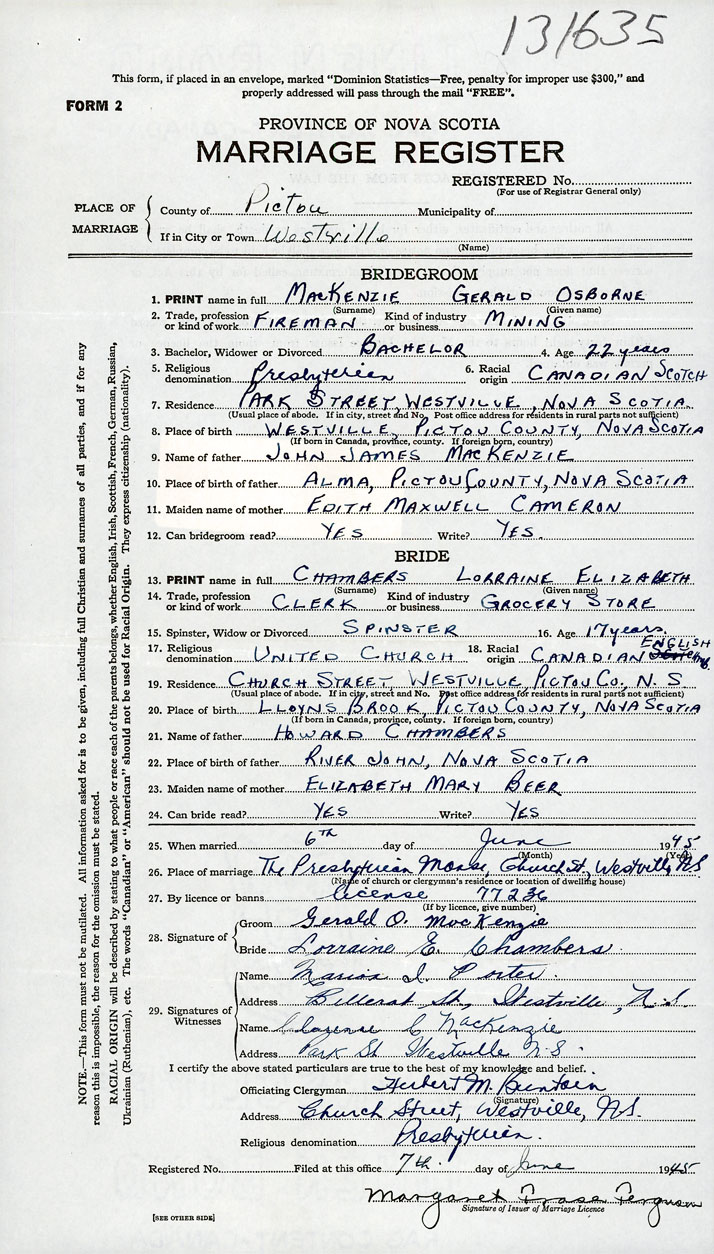 131635
This form, if placed in an envelope, marked "Dominion Statistics—Free, penalty for improper use $300," and
properly addressed will pass through the mail "FREE".
FORM 2
PROVINCE OF NOVA SCOTIA
MARRIAGE REGISTER
REGISTERED No.
(For use of Registrar General only)
PLACE OF MARRIAGE
County of Pictou Municipality of
If in City or Town Westville
(Name)
BRIDEGROOM
1. PRINT name in full MACKENZIE GERALD OSBORNE
(Surname) (Given name)
2. Trade, profession or kind of work FIREMAN Kind of industry or business MINING
3. Bachelor, Widower or Divorced BACHELOR 4. Age 22 years
5. Religious denomination Presbyterian 6. Racial origin CANADIAN SCOTCH
7. Residence PARK STREET, WESTVILLE, NOVA SCOTIA
(Usual place of abode. If in city, street and No. Post office address for residents in rural parts not sufficient)
8. Place of birth WESTVILLE, PICTOU COUNTY, NOVA SCOTIA
(If born in Canada, province, county. If foreign born, country)
9. Name of father JOHN JAMES MACKENZIE
10. Place of birth of father ALMA, PICTOU COUNTY, NOVA SCOTIA
11. Maiden name of mother EDITH MAXWELL CAMERON
12. Can bridegroom read? YES Write? YES.
BRIDE
13. PRINT name in full CHAMBERS LORRAINE ELIZABETH
(Surname) (Given name)
14. Trade, profession or kind of work CLERK Kind of industry or business GROCERY STORE
15. Spinster, Widow or Divorced SPINSTER 16. Age 17 years
17. Religious denomination UNITED CHURCH 18. Racial origin CANADIAN ENGLISH
19. Residence CHURCH STREET, WESTVILLE, PICTOU CO., N. S
(Usual place of abode. If in city, street and No. Post office address for residents in rural parts not sufficient)
20. Place of birth LLOYNS BROOK, PICTOU COUNTY, NOVA SCOTIA
(If born in Canada, province, county. If foreign born, country)
21. Name of father HOWARD CHAMBERS
22. Place of birth of father RIVER JOHN, NOVA SCOTIA
23. Maiden name of mother ELIZABETH MARY BEER
24. Can bride read? YES Write? YES
25. When married 6TH day of June 1945
(Month) (Year)
26. Place of marriage The Presbyterian Manse, Church St., Westville, N.S
(Name of church or clergyman's residence or location of dwelling house)
27. By licence or banns license 77236
(If by licence, give number)
28. Signature of
Groom Gerald O. MacKenzie
Bride Lorraine E. Chambers.
29. Signatures of Witnesses
Name Marion I. Porter.
Address St., Westville, N.S.
Name Clarence C MacKenzie
Address Park St Westville N.S.
I certify the above stated particulars are true to the best of my knowledge and belief.
Officiating Clergyman Herbert M. Buntain
(Signature)
Address Church Street, Westville, N.S.
Religious denomination Presbyterian.
Registered No. Filed at this office 7th. day of June 1945
Margaret Ferguson
Signature of Issuer of Marriage Licence
[SEE OTHER SIDE]
NOTE.—This form must not be mutilated. All information asked for is to be given, including full Christian and surnames of all parties, and if for any
reason this is impossible, the reason for the omission must be stated.
RACIAL ORIGIN will be described by stating to what people or race each of the parents belongs, whether English, Irish, Scottish, French, German, Russian,
Ukrainian (Ruthenian), etc. The words "Canadian" or "American" should not be used for Racial Origin. They express citizenship (nationality).